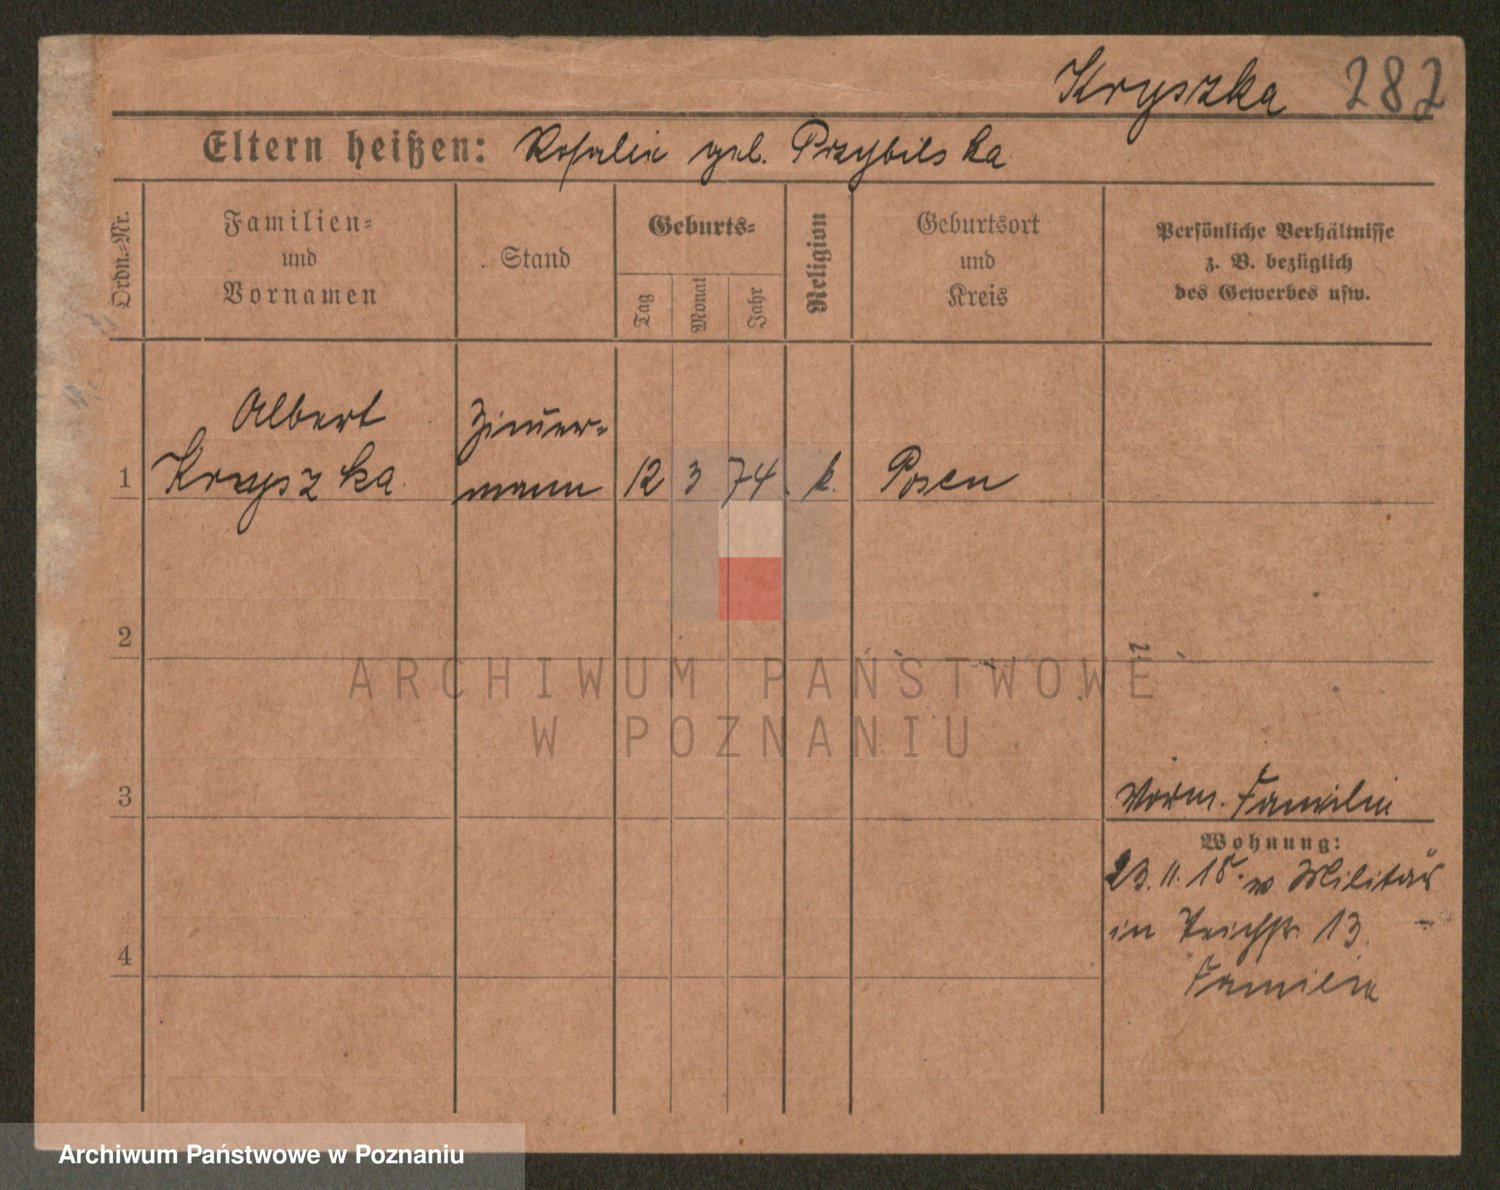 Kryszka 282
Eltern heißen: Rosalie geb. Przybilska
Ordn.-Nr.
Familien-
und
Vornamen
Stand
Geburts-
Tag
Monat
Jahr
Religion
Geburtsort
und
Kreis
Persönliche Verhältnisse
z. B. bezüglich
des Gewerbes usw.
Albert Zim̄er-
1 Kryszka mann 12 3 74 k. Posen
2
ARCHIWUM PAŃSTWOWE
W POZNANIU
3 Vorm. Familie
Wohnung:
23. 11. 15. Militär
in Teichstr 13.
4
Familie
Archiwum Państwowe w Poznaniu